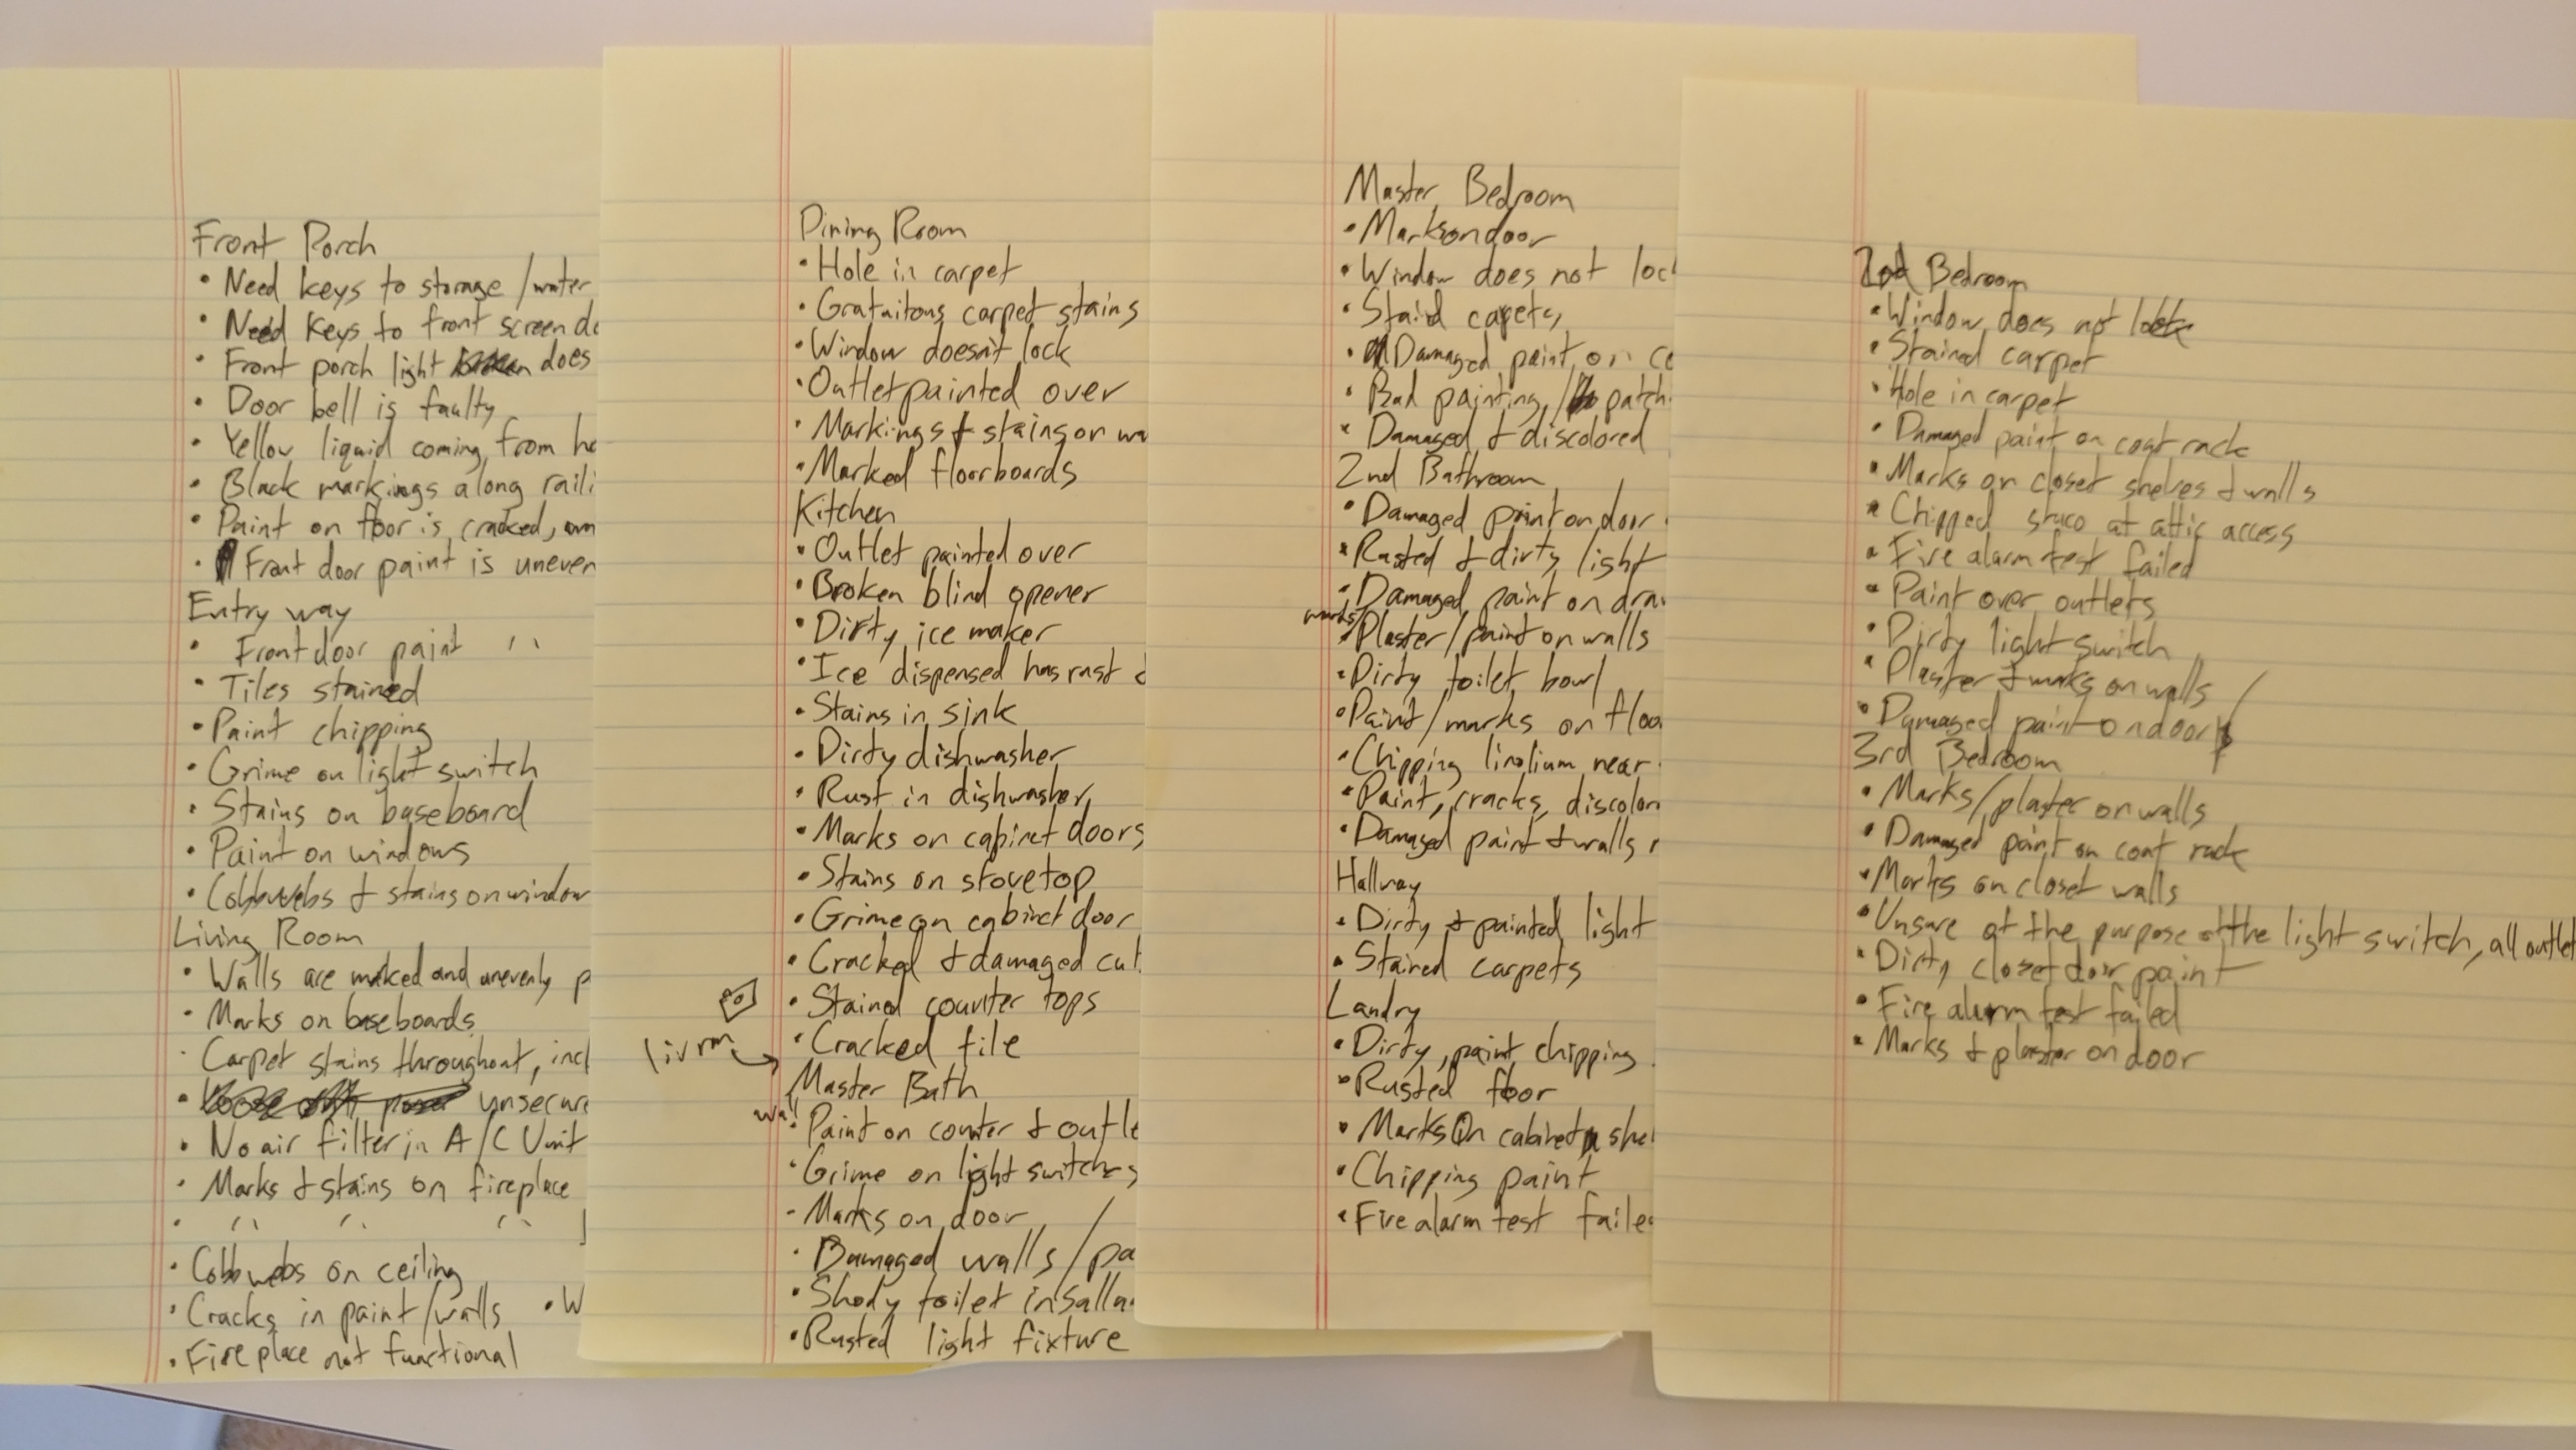 Front Porch
• Need keys to storage/water
• Need keys to front screen
• Front porch light does
• Door bell is faulty
• Yellow liquid coming from
• Black markings along
• Paint on floor is cracked,
• Front door paint is uneven
Entry way
• Front door paint " 
• Tiles stained
• Paint chipping
• Grime on light switch
• Stains on baseboard
• Paint on windows
• Cobbwebs & stains on window
Living Room
• Walls are marked and unevenly
• Marks on baseboards
• Carpet stains throughout,
• unsecure
• No air filter in A/C Unit
• Marks & stains on fireplace
• " " "
• Cobbwebs on ceiling
• Cracks in paint/walls • W
• Fireplace not functional
Dining Room
• Hole in carpet
• Gratuitous carpet stains
• Window doesn't lock
• Outlet painted over
• Markings & stains on wa
• Marked floorboards
Kitchen
• Outlet painted over
• Broken blind opener
• Dirty ice maker
• Ice dispensed has rust
• Stains in sink
• Dirty dishwasher
• Rust in dishwasher
• Marks on cabinet doors
• Stains on stovetop
• Grime on cabinet door
• Cracked & damaged cut
• Stained counter tops
livrm
• Cracked tile
Master Bath
wall
• Paint on counter & outle
• Grime on light switches
• Marks on door
• Damaged walls/pa
• Shody toilet insalla
• Rusted light fixture
Master Bedroom
• Marks on door
• Window does not loc
• Staind carpets
• Damaged paint on
• Bad painting/patch
• Damaged & discolored
2nd Bathroom
• Damaged paint on door
• Rusted & dirty light
• Damaged paint on dra
marks/
• Plaster/paint on walls
• Dirty toilet bowl
• Paint/marks on floo
• Chipping linolium near
• Paint, cracks, discolor
• Damaged paint & walls
Hallway
• Dirty & painted light
• Stained carpets
Landry
• Dirty, paint chipping
• Rusted floor
• Marks On cabinet she
• Chipping paint
• Fire alarm test faile
2nd Bedroom
• Window does not lock
• Stained carpet
• Hole in carpet
• Damaged paint on coat rack
• Marks on closet shelves & walls
• Chipped stuco at attic access
• Fire alarm test failed
• Paint over outlets
• Dirty light switch
• Plaster & marks on walls
• Damaged paint on door
3rd Bedroom
• Marks/plaster on walls
• Damaged paint on coat rack
• Marks on closet walls
• Unsure of the purpose of the light switch, all outlet
• Dirty closet door paint
• Fire alarm test failed
• Marks & plaster on door